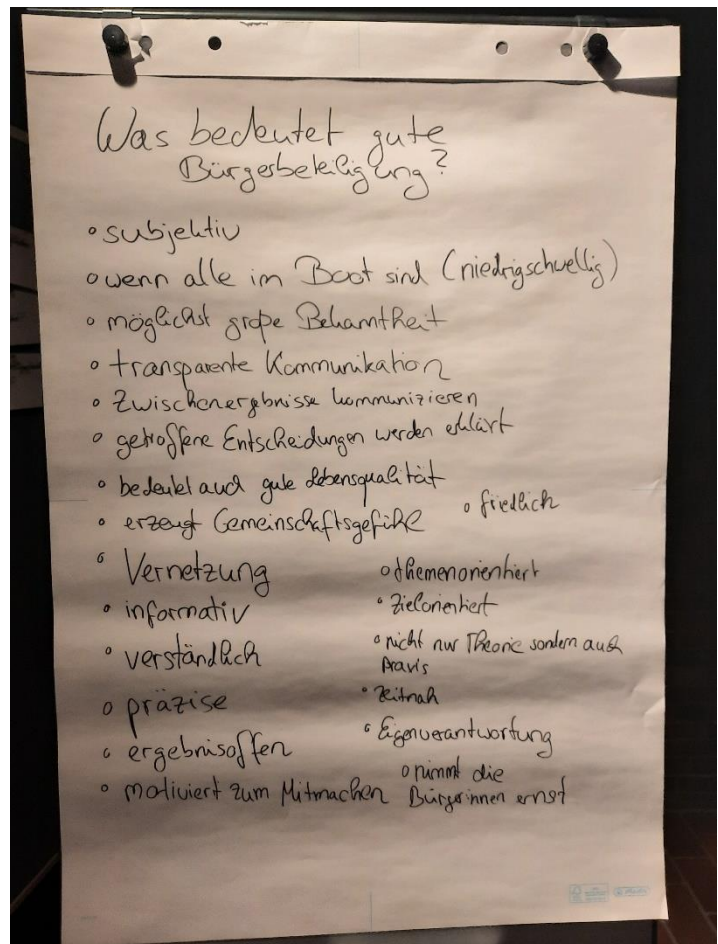 Was bedeutet gute
Bürgerbeteiligung?
◦ subjektiv
◦ wenn alle im Boot sind (niedrigschwellig)
◦ möglichst große Bekanntheit
◦ transparente Kommunikation
◦ Zwischenergebnisse kommunizieren
◦ getroffene Entscheidungen werden erklärt
◦ bedeutet auch gute Lebensqualität
◦ erzeugt Gemeinschaftsgefühl
◦ Vernetzung
◦ informativ
◦ verständlich
◦ präzise
◦ ergebnisoffen
◦ motiviert zum Mitmachen
◦ friedlich
◦ themenorientiert
◦ zielorientiert
◦ nicht nur Theorie sondern auch
Praxis
◦ zeitnah
◦ Eigenverantwortung
◦ nimmt die
Bürgerinnen ernst